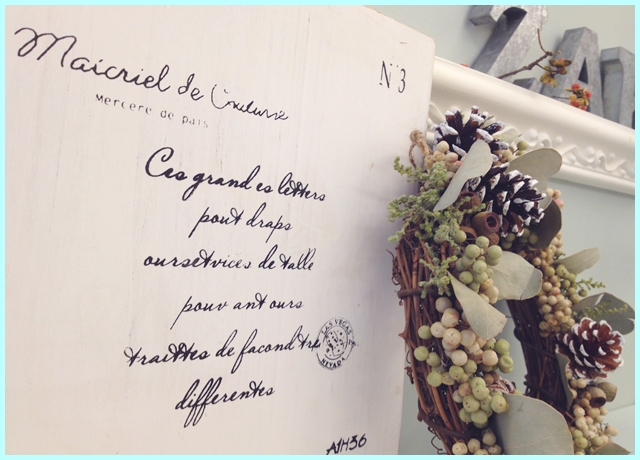 Maicriel de Couture
N°3
Mercere de pais
Ces grand es letters
pout draps
oursetvices de talle
pouv ant ours
traittes de facond trps
differentes
LAS VEGAS
NEVADA
A1H36
ZAK